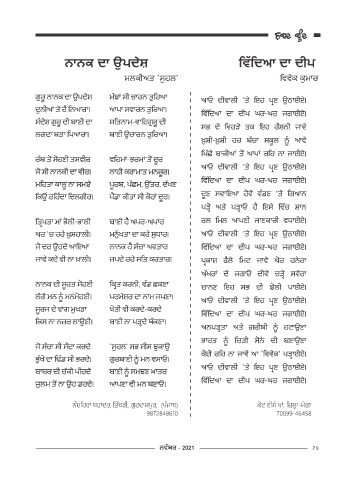 ਨਾਨਕ ਦਾ ਉਪਦੇਸ਼
ਮਲਕੀਅਤ 'ਸੁਹਲ'
ਗੁਰੂ ਨਾਨਕ ਦਾ ਉਪਦੇਸ਼
ਦੁਨੀਆਂ ਤੋਂ ਹੈ ਨਿਆਰਾ।
ਸੰਦੇਸ਼ ਗੁਰੂ ਦੀ ਬਾਣੀ ਦਾ
ਲਗਦਾ ਬੜਾ ਪਿਆਰਾ।
ਰੱਬ ਤੋਂ ਸੋਹਣੀ ਤਸਵੀਰ
ਜੋ ਸੀ ਨਾਨਕੀ ਦਾ ਵੀਰ।
ਮਹਿਤਾ ਕਾਲੂ ਨਾ ਸਮਝੇ
ਕਿਉਂ ਰਹਿੰਦਾ ਦਿਲਗੀਰ।
ਤ੍ਰਿਪਤਾ ਮਾਂ ਭੋਲੀ-ਭਾਲੀ
ਘਰ 'ਚ ਰਹੇ ਖੁਸ਼ਹਾਲੀ।
ਜੋ ਦਰ ਉਹਦੇ ਆਇਆ
ਜਾਵੇ ਕਦੇ ਵੀ ਨਾ ਖ਼ਾਲੀ।
ਨਾਨਕ ਦੀ ਸੂਰਤ ਸੋਹਣੀ
ਲੱਗੇ ਮਨ ਨੂੰ ਮਨਮੋਹਣੀ।
ਸੂਰਜ ਦੇ ਵਾਂਗ ਮੁਖੜਾ
ਕਿਸ ਨਾ ਨਜ਼ਰ ਲਾਉਣੀ।
ਜੋ ਸੱਚਾ ਸੀ ਸੌਦਾ ਕਰਦੇ
ਭੁੱਖੇ ਦਾ ਢਿੱਡ ਸੀ ਭਰਦੇ।
ਬਾਬਰ ਦੀ ਚੱਕੀ ਪੀਂਹਦੇ
ਜ਼ੁਲਮ ਤੋਂ ਨਾ ਉਹ ਡਰਦੇ।
ਮੱਝਾਂ ਸੀ ਚਾਰਨ ਤੁਰਿਆ
ਆਪਾ ਸਵਾਰਨ ਤੁਰਿਆ।
ਸਤਿਨਾਮ-ਵਾਹਿਗੁਰੂ ਦੀ
ਬਾਣੀ ਉਚਾਰਨ ਤੁਰਿਆ।
ਵਹਿਮਾਂ ਭਰਮਾਂ ਤੋਂ ਦੂਰ
ਨਾਹੀ ਕਰਾਮਾਤ ਮਨਜ਼ੂਰ।
ਪੂਰਬ, ਪੱਛਮ, ਉੱਤਰ, ਦੱਖਣ
ਪੈਂਡਾ ਕੀਤਾ ਸੀ ਕੋਹਾਂ ਦੂਰ।
ਬਾਣੀ ਹੈ ਅਪਰ-ਅਪਾਰ
ਮਨੁੱਖਤਾ ਦਾ ਕਰੇ ਸੁਧਾਰ।
ਨਾਨਕ ਹੈ ਸੱਚਾ ਅਵਤਾਰ
ਜਪਦੇ ਰਹੋ ਸਤਿ ਕਰਤਾਰ।
ਕਿਰਤ ਕਰਨੀ, ਵੰਡ ਛਕਣਾ
ਪਰਮੇਸ਼ਰ ਦਾ ਨਾਮ ਜਪਣਾ।
ਖੇਤੀ ਵੀ ਕਰਦੇ-ਕਰਦੇ
ਬਾਣੀ ਨਾ ਪੜ੍ਹਦੇ ਥੱਕਣਾ।
'ਸੁਹਲ' ਸਭ ਸੀਸ ਝੁਕਾਉ
ਗੁਰਬਾਣੀ ਨੂੰ ਮਨ ਵਸਾਓ।
ਬਾਣੀ ਨੂੰ ਸਮਝਣ ਖ਼ਾਤਰ
ਆਪਣਾ ਵੀ ਮਨ ਬਣਾਓ।
ਨੌਸ਼ਹਿਰਾ ਬਹਾਦਰ, ਤਿੱਬੜੀ, ਗੁਰਦਾਸਪੁਰ, (ਪੰਜਾਬ)
9872848610
ਵਿੱਦਿਆ ਦਾ ਦੀਪ
ਵਿਵੇਕ ਕੁਮਾਰ
ਆਓ ਦੀਵਾਲੀ 'ਤੇ ਇਹ ਪ੍ਰਣ ਉਠਾਈਏ।
ਵਿੱਦਿਆ ਦਾ ਦੀਪ ਘਰ-ਘਰ ਜਗਾਈਏ।
ਸਭ ਦੇ ਵਿਹੜੇ ਤਕ ਇਹ ਰੌਸ਼ਨੀ ਜਾਵੇ
ਖ਼ੁਸ਼ੀ-ਖ਼ੁਸ਼ੀ ਹਰ ਬੱਚਾ ਸਕੂਲ ਨੂੰ ਆਵੇ
ਪਿੱਛੇ ਬਾਕੀਆਂ ਤੋਂ ਆਪਾਂ ਰਹਿ ਨਾ ਜਾਈਏ।
ਆਓ ਦੀਵਾਲੀ 'ਤੇ ਇਹ ਪ੍ਰਣ ਉਠਾਈਏ।
ਵਿੱਦਿਆ ਦਾ ਦੀਪ ਘਰ-ਘਰ ਜਗਾਈਏ।
ਦੂਣ ਸਵਾਇਆ ਹੋਵੇ ਵੰਡਣ 'ਤੇ ਗਿਆਨ
ਪੜ੍ਹੋ ਅਤੇ ਪੜ੍ਹਾਓ ਹੈ ਇਸੇ ਵਿੱਚ ਸ਼ਾਨ
ਰਲ ਮਿਲ ਆਪਣੀ ਜਾਣਕਾਰੀ ਵਧਾਈਏ।
ਆਓ ਦੀਵਾਲੀ 'ਤੇ ਇਹ ਪ੍ਰਣ ਉਠਾਈਏ।
ਵਿੱਦਿਆ ਦਾ ਦੀਪ ਘਰ-ਘਰ ਜਗਾਈਏ।
ਪ੍ਰਕਾਸ਼ ਫੈਲੇ ਮਿਟ ਜਾਵੇ ਘੋਰ ਹਨੇਰਾ
ਅੱਖਰਾਂ ਦੇ ਜਗਾਓ ਦੀਵੇ ਚੜ੍ਹੇ ਸਵੇਰਾ
ਚਾਨਣ ਇਹ ਸਭ ਦੀ ਝੋਲੀ ਪਾਈਏ।
ਆਓ ਦੀਵਾਲੀ 'ਤੇ ਇਹ ਪ੍ਰਣ ਉਠਾਈਏ।
ਵਿੱਦਿਆ ਦਾ ਦੀਪ ਘਰ-ਘਰ ਜਗਾਈਏ।
ਅਨਪੜ੍ਹਤਾ ਅਤੇ ਗਰੀਬੀ ਨੂੰ ਹਟਾਉਣਾ
ਭਾਰਤ ਨੂੰ ਚਿੜੀ ਸੋਨੇ ਦੀ ਬਣਾਉਣਾ
ਕੋਈ ਰਹਿ ਨਾ ਜਾਵੇ ਆ 'ਵਿਵੇਕ' ਪੜ੍ਹਾਈਏ।
ਆਓ ਦੀਵਾਲੀ 'ਤੇ ਇਹ ਪ੍ਰਣ ਉਠਾਈਏ।
ਵਿੱਦਿਆ ਦਾ ਦੀਪ ਘਰ-ਘਰ ਜਗਾਈਏ।
ਕੋਟ ਈਸੇ ਖਾਂ, ਜ਼ਿਲ੍ਹਾ-ਮੋਗਾ
70099-46458
ਨਵੰਬਰ - 2021